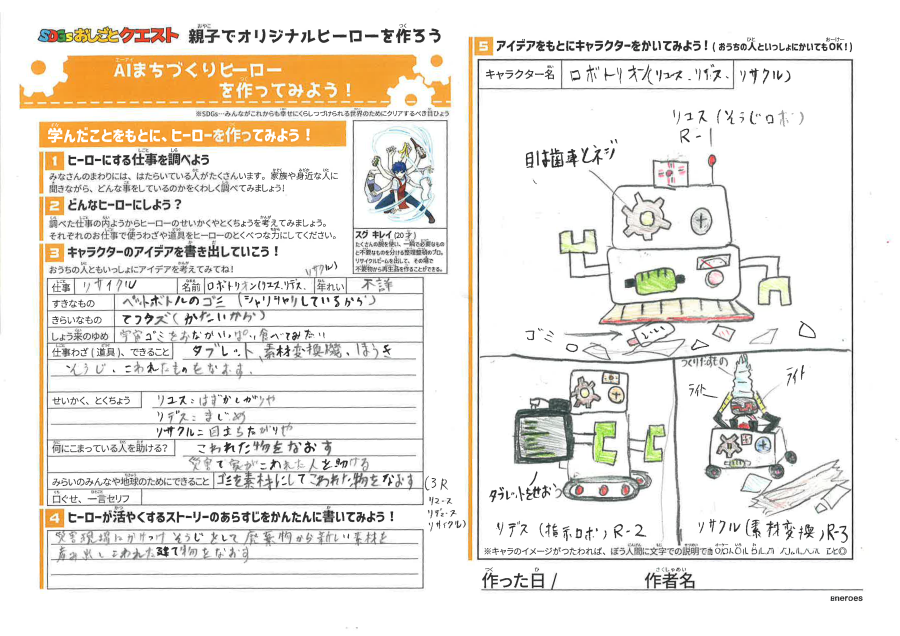 SDGsおしごとクエスト 親子でオリジナルヒーローを作ろう
AIまちづくりヒーロー
を作ってみよう！
※SDGs…みんながこれからも幸せにくらしつづけられる世界のためにクリアするべき目ひょう
学んだことをもとに、ヒーローを作ってみよう！
1 ヒーローにする仕事を調べよう
みなさんのまわりには、はたらいている人がたくさんいます。家族や身近な人に
聞きながら、どんな事をしているのかをくわしく調べてみましょう！
2 どんなヒーローにしよう？
調べた仕事の内ようからヒーローのせいかくやとくちょうを考えてみましょう。
それぞれのお仕事で使うわざや道具をヒーローのとくべつな力にしてください。
3 キャラクターのアイデアを書き出していこう！
おうちの人ともいっしょにアイデアを考えてみてね！
スグ キレイ(20才)
たくさんの腕を使い、一瞬で必要なもの
と不要なものを分ける整理整頓のプロ。
リサイクルビームを出して、その場で
不要物から再生品を作ることができる。
仕事 リサイクル 名前 ロボトリオン(リユース、リデュース、リサイクル) 年れい 不詳
すきなもの ペットボトルのゴミ (シャリシャリしているから)
きらいなもの てつクズ(かたいから)
しょう来のゆめ 宇宙ゴミをおなかいっぱい食べてみたい
仕事わざ(道具)、できること タブレット、素材変換機、ほうき
そうじ、こわれたものをなおす。
せいかく、とくちょう リユース:はずかしがりや
リデス:まじめ
リサクル:目立ちたがりや
何にこまっている人を助ける？ こわれた物をなおす
災害で家がこわれた人を助ける
みらいのみんなや地球のためにできること ゴミを素材にしてこわれた物をなおす (3R
リユース
リデュース
リサイクル)
口ぐせ、一言セリフ
4 ヒーローが活やくするストーリーのあらすじをかんたんに書いてみよう！
災害現場にかけつけ そうじをして 廃棄物から新しい素材を
産み出し こわれた建て物をなおす
5 アイデアをもとにキャラクターをかいてみよう！(おうちの人といっしょにかいてもOK！)
キャラクター名 ロボトリオン(リユス、リデス、リサクル)
リユス(そうじロボ)
R-1
目は歯車とネジ
ゴミ
タブレットをせおう
リデス(指示ロボ)R-2
つくりだすもの
ライト
ライト
リサクル(素材変換)R-3
※キャラのイメージがつたわれば、ぼう人間に文字での説明でも
作った日 / 作者名
eneroes